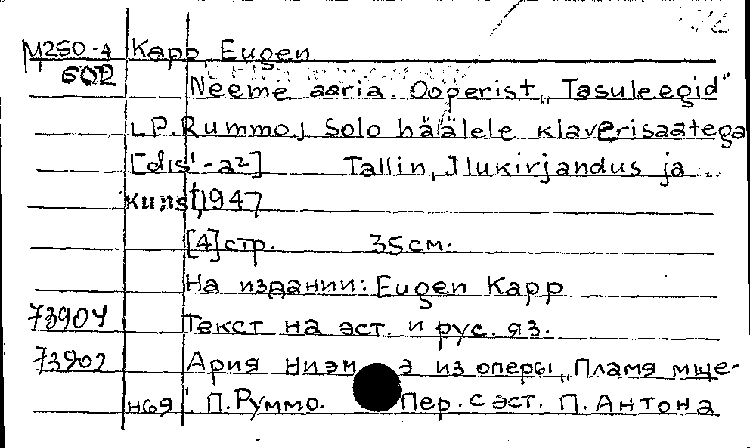 M250-4 Kapp Eugen
602 Neeme aaria. Ooperist „Tasuleegid"
L.P. Rummo, Solo häälele klaverisaatega
[dis¹-a²] Tallin, Ilukirjandus ja
Kunst, 1947
[4] стр. 35 см.
На издании: Eugen Kapp
73904 Текст на эст. и рус. яз.
73902 Ария из оперы „Пламя мще-
П. Руммо. Пер. с эст. П. Антона